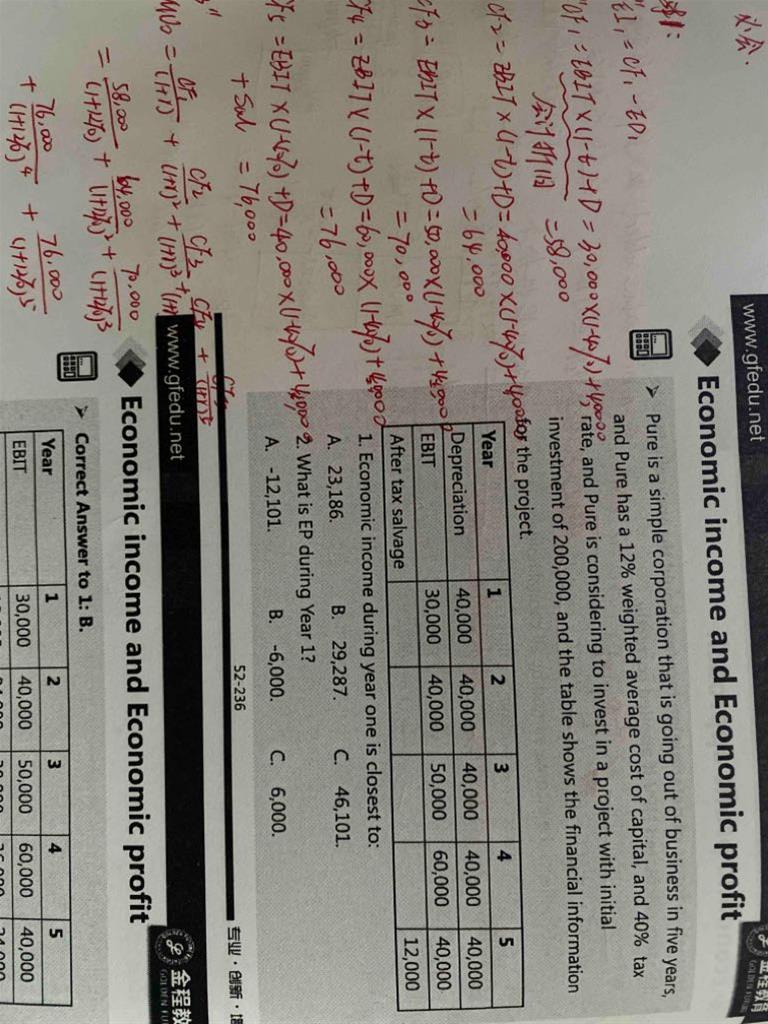 www.gfedu.net
Economic income and Economic profit
Pure is a simple corporation that is going out of business in five years,
and Pure has a 12% weighted average cost of capital, and 40% tax
rate, and Pure is considering to invest in a project with initial
investment of 200,000, and the table shows the financial information
for the project.
Year 1 2 3 4 5
Depreciation 40,000 40,000 40,000 40,000 40,000
EBIT 30,000 40,000 50,000 60,000 40,000
After tax salvage 12,000
1. Economic income during year one is closest to:
A. 23,186. B. 29,287. C. 46,101.
2. What is EP during Year 1?
A. -12,101. B. -6,000. C. 6,000.
52-236
专业·创新·
www.gfedu.net
金程教
Economic income and Economic profit
Correct Answer to 1: B.
Year 1 2 3 4 5
EBIT 30,000 40,000 50,000 60,000 40,000
EI₁ = CF₁ - ED₁
CF₁ = EBIT×(1-t)+D = 30,000×(1-40%)+40000
会计折旧 = 58,000
CF₂ = EBIT×(1-t)+D = 40,000×(1-40%)+40000
= 64,000
CF₃ = EBIT×(1-t)+D = 50,000×(1-40%)+40,000
= 70,000
CF₄ = EBIT×(1-t)+D = 60,000×(1-40%)+40000
= 76,000
CF₅ = EBIT×(1-40%)+D = 40,000×(1-40%)+40,000
+ Sal = 76,000
= 58,000/(1+12%) + 64,000/(1+12%)² + 70,000/(1+12%)³
+ 76,000/(1+12%)⁴ + 76,000/(1+12%)⁵